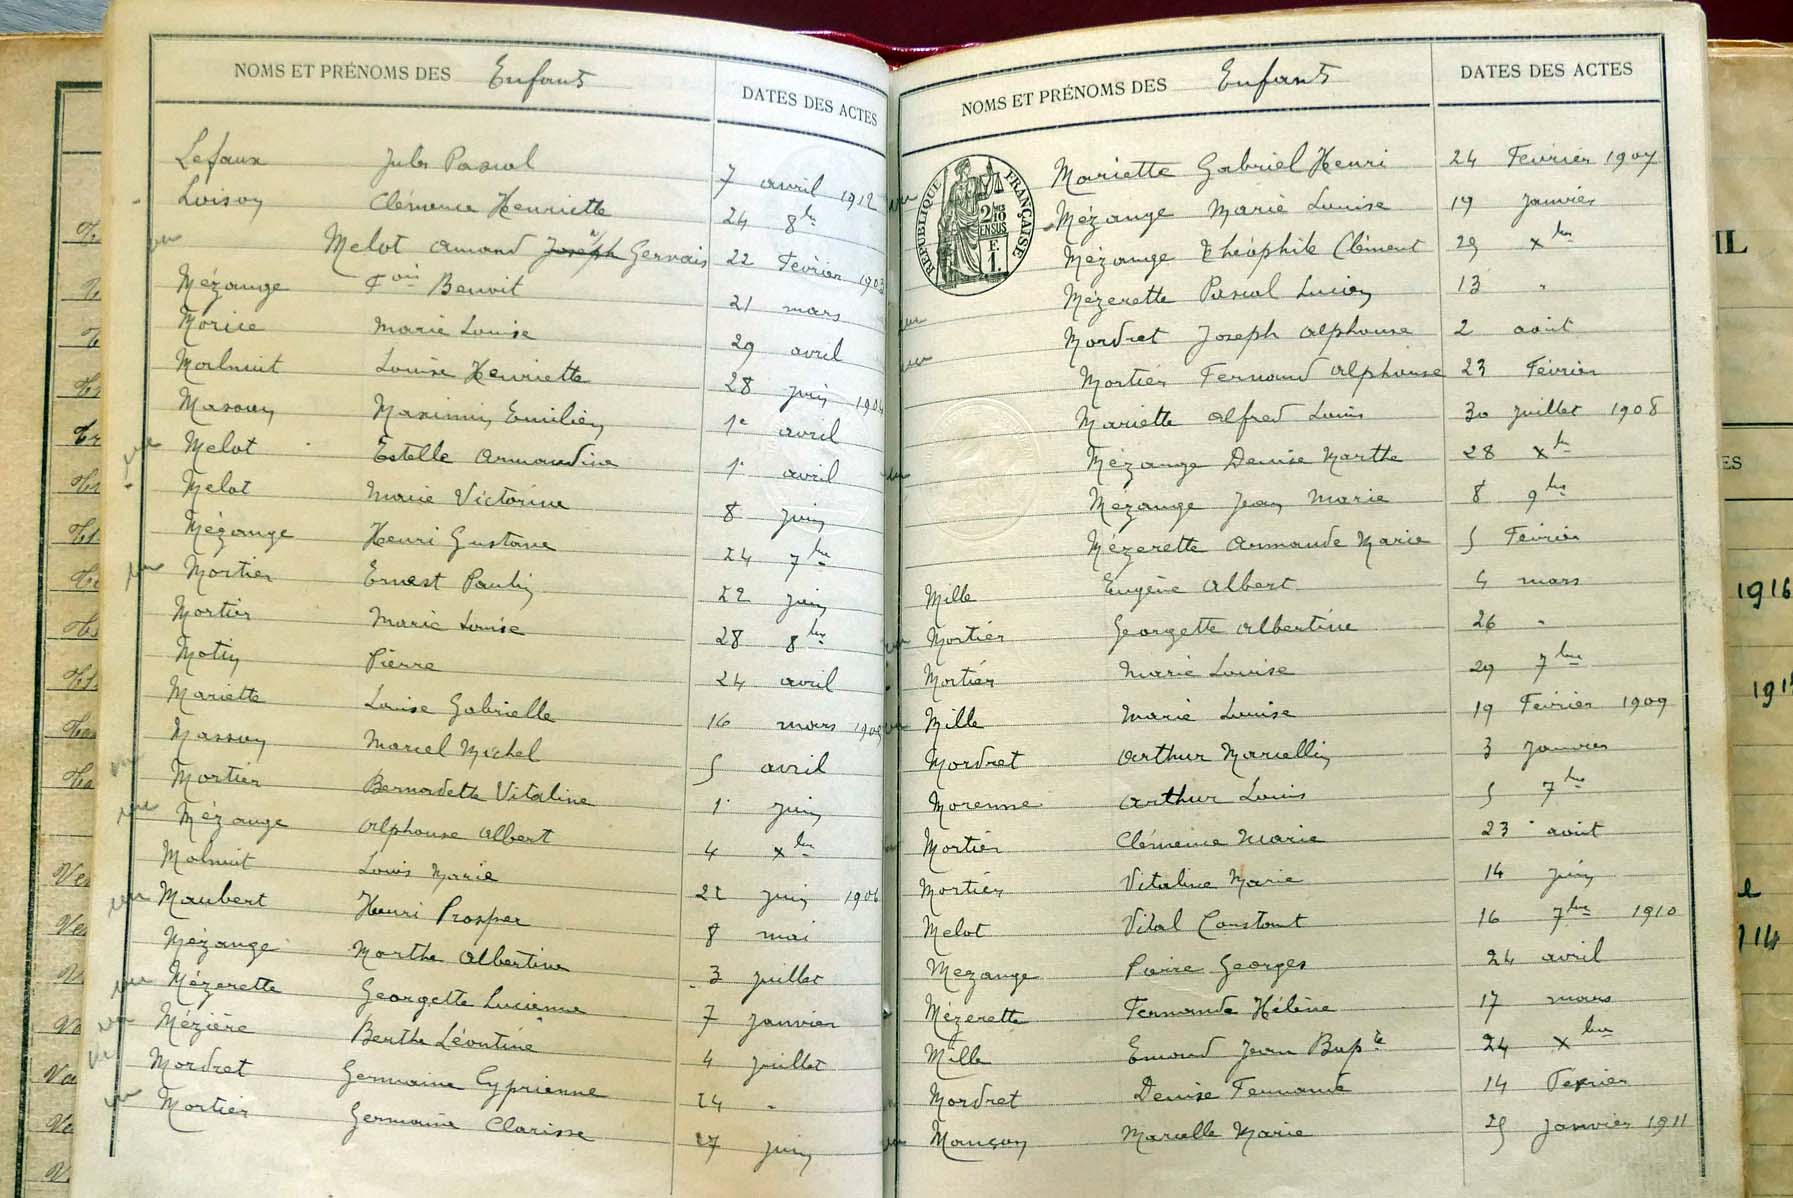 NOMS ET PRÉNOMS DES Enfants DATES DES ACTES
Lefaux Jules Pascal 7 avril 1912
Loison Clémence Henriette 24 8bre
Melot Amand Joseph Gervais 22 Février 1903
Mézange Fois Benoit 21 mars
Morice Marie Louise 29 avril
Malnuit Louise Henriette 28 juin 1904
Masson Maximin Emilien 1e avril
Melot Estelle Armandine 1e avril
Melot Marie Victorine 8 juin
Mézange Henri Gustave 24 7bre
Mortier Ernest Paulin 22 juin
Mortier Marie Louise 28 8bre
Motin Pierre 24 avril
Mariette Louise Gabrielle 16 mars
Masson Marcel Michel 5 avril
Mortier Bernadette Vitaline 1e juin
Mézange Alphonse Albert 4 xbre
Malnuit Louis Marie 22 juin 1906
Maubert Henri Prosper 8 mai
Mézange Marthe Albertine 3 juillet
Mézerette Georgette Lucienne 7 janvier
Mézière Berthe Léontine 4 juillet
Mordret Germaine Cyprienne 24 "
Mortier Germaine Clarisse 27 juin
NOMS ET PRÉNOMS DES Enfants DATES DES ACTES
RÉPUBLIQUE FRANÇAISE
2/10
EN SUS
F.
1.
Mariette Gabriel Henri 24 Février 1907
Mézange Marie Louise 19 janvier
Mézange Théophile Clément 29 xbre
Mézerette Pascal Lucien 13 "
Mordret Joseph Alphonse 2 août
Mortier Fernand Alphonse 23 Février
Mariette Alfred Louis 30 juillet 1908
Mézange Denise Marthe 28 xbre
Mézange Jean Marie 8 9bre
Mézerette Armande Marie 5 Février
Mille Eugène Albert 4 mars
Mortier Georgette Albertine 26 "
Mortier Marie Louise 29 7bre
Mille Marie Louise 19 Février 1909
Mordret Arthur Marcellin 3 janvier
Morenne Arthur Louis 5 7bre
Mortier Clémence Marie 23 août
Mortier Vitaline Marie 14 juin
Melot Vital Constant 16 7bre 1910
Mézange Pierre Georges 24 avril
Mézerette Fernande Hélène 17 mars
Mille Emond Jean Bapte 24 xbre
Mordret Denise Fernande 14 Février
Manson Marcelle Marie 25 janvier 1911
1916